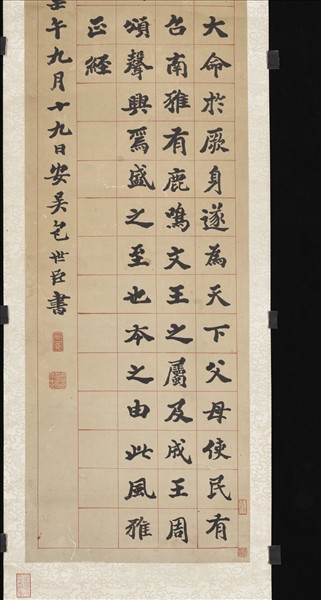 大命於厥身遂為天下父母使民有
召南雅有鹿鳴文王之屬及成王周
頌聲興焉盛之至也本之由此風雅
正經
午九月十九日安吳包世臣書